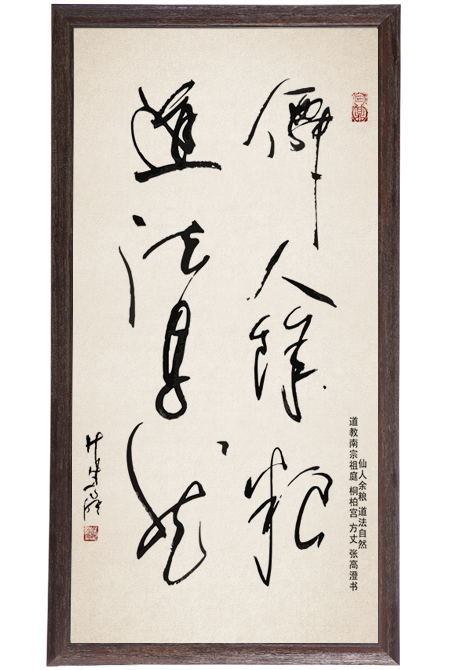 仙人余粮 道法自然
道教南宗祖庭 桐柏宫 方丈 张高澄书
僊人餘粮
道法自然